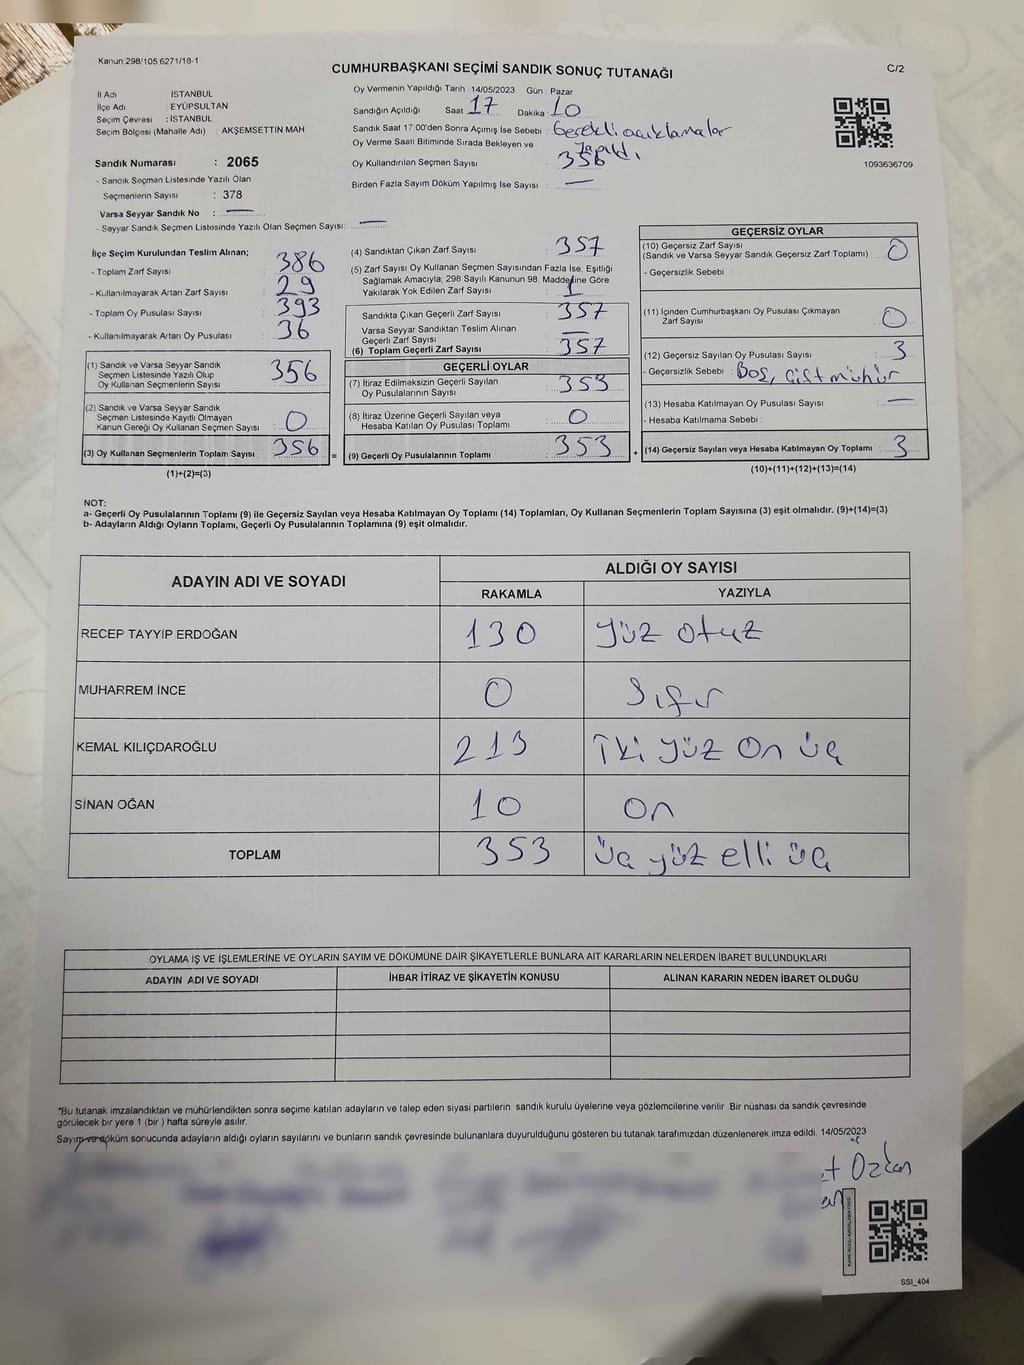 Kanun:298/105 6271/18-1
CUMHURBAŞKANI SEÇİMİ SANDIK SONUÇ TUTANAĞI
C/2
İl Adı : İSTANBUL
İlçe Adı : EYÜPSULTAN
Seçim Çevresi : İSTANBUL
Seçim Bölgesi (Mahalle Adı) : AKŞEMSETTIN MAH
Sandık Numarası : 2065
- Sandık Seçmen Listesinde Yazılı Olan
Seçmenlerin Sayısı : 378
Varsa Seyyar Sandık No : —
- Seyyar Sandık Seçmen Listesinde Yazılı Olan Seçmen Sayısı: —
Oy Vermenin Yapıldığı Tarih : 14/05/2023 Gün : Pazar
Sandığın Açıldığı Saat : 17 Dakika : 10
Sandık Saat 17:00'den Sonra Açımış İse Sebebi : Gerekli açıklamalar
yapıldı.
Oy Verme Saati Bitiminde Sırada Bekleyen ve
Oy Kullandırılan Seçmen Sayısı : 356
Birden Fazla Sayım Döküm Yapılmış İse Sayısı : —
1093636709
İlçe Seçim Kurulundan Teslim Alınan;
- Toplam Zarf Sayısı : 386
- Kullanılmayarak Artan Zarf Sayısı : 29
- Toplam Oy Pusulası Sayısı : 393
- Kullanılmayarak Artan Oy Pusulası : 36
(1) Sandık ve Varsa Seyyar Sandık
Seçmen Listesinde Yazılı Olup
Oy Kullanan Seçmenlerin Sayısı : 356
(2) Sandık ve Varsa Seyyar Sandık
Seçmen Listesinde Kayıtlı Olmayan
Kanun Gereği Oy Kullanan Seçmen Sayısı : 0
(3) Oy Kullanan Seçmenlerin Toplam Sayısı : 356
(1)+(2)=(3)
=
(4) Sandıktan Çıkan Zarf Sayısı : 357
(5) Zarf Sayısı Oy Kullanan Seçmen Sayısından Fazla İse, Eşitliği
Sağlamak Amacıyla; 298 Sayılı Kanunun 98. Maddesine Göre
Yakılarak Yok Edilen Zarf Sayısı : 1
Sandıkta Çıkan Geçerli Zarf Sayısı : 357
Varsa Seyyar Sandıktan Teslim Alınan
Geçerli Zarf Sayısı : —
(6) Toplam Geçerli Zarf Sayısı : 357
GEÇERLİ OYLAR
(7) İtiraz Edilmeksizin Geçerli Sayılan
Oy Pusulalarının Sayısı : 353
(8) İtiraz Üzerine Geçerli Sayılan veya
Hesaba Katılan Oy Pusulası Toplamı : 0
(9) Geçerli Oy Pusulalarının Toplamı : 353
+
GEÇERSİZ OYLAR
(10) Geçersiz Zarf Sayısı
(Sandık ve Varsa Seyyar Sandık Geçersiz Zarf Toplamı) : 0
- Geçersizlik Sebebi :
(11) İçinden Cumhurbaşkanı Oy Pusulası Çıkmayan
Zarf Sayısı : 0
(12) Geçersiz Sayılan Oy Pusulası Sayısı : 3
- Geçersizlik Sebebi : Boş, Çift mühür
(13) Hesaba Katılmayan Oy Pusulası Sayısı : —
- Hesaba Katılmama Sebebi :
(14) Geçersiz Sayılan veya Hesaba Katılmayan Oy Toplamı : 3
(10)+(11)+(12)+(13)=(14)
NOT:
a- Geçerli Oy Pusulalarının Toplamı (9) ile Geçersiz Sayılan veya Hesaba Katılmayan Oy Toplamı (14) Toplamları, Oy Kullanan Seçmenlerin Toplam Sayısına (3) eşit olmalıdır. (9)+(14)=(3)
b- Adayların Aldığı Oyların Toplamı, Geçerli Oy Pusulalarının Toplamına (9) eşit olmalıdır.
ADAYIN ADI VE SOYADI
ALDIĞI OY SAYISI
RAKAMLA YAZIYLA
RECEP TAYYİP ERDOĞAN 130 Yüz otuz
MUHARREM İNCE 0 Sıfır
KEMAL KILIÇDAROĞLU 213 İki yüz On üç
SİNAN OĞAN 10 On
TOPLAM 353 Üç yüz elli üç
OYLAMA İŞ VE İŞLEMLERİNE VE OYLARIN SAYIM VE DÖKÜMÜNE DAİR ŞİKAYETLERLE BUNLARA AİT KARARLARIN NELERDEN İBARET BULUNDUKLARI
ADAYIN ADI VE SOYADI İHBAR İTİRAZ VE ŞİKAYETİN KONUSU ALINAN KARARIN NEDEN İBARET OLDUĞU
*Bu tutanak imzalandıktan ve mühürlendikten sonra seçime katılan adayların ve talep eden siyasi partilerin sandık kurulu üyelerine veya gözlemcilerine verilir. Bir nüshası da sandık çevresinde
görülecek bir yere 1 (bir ) hafta süreyle asılır.
Sayım ve döküm sonucunda adayların aldığı oyların sayılarını ve bunların sandık çevresinde bulunanlara duyurulduğunu gösteren bu tutanak tarafımızdan düzenlenerek imza edildi. 14/05/2023
et Özkan
SSI_404